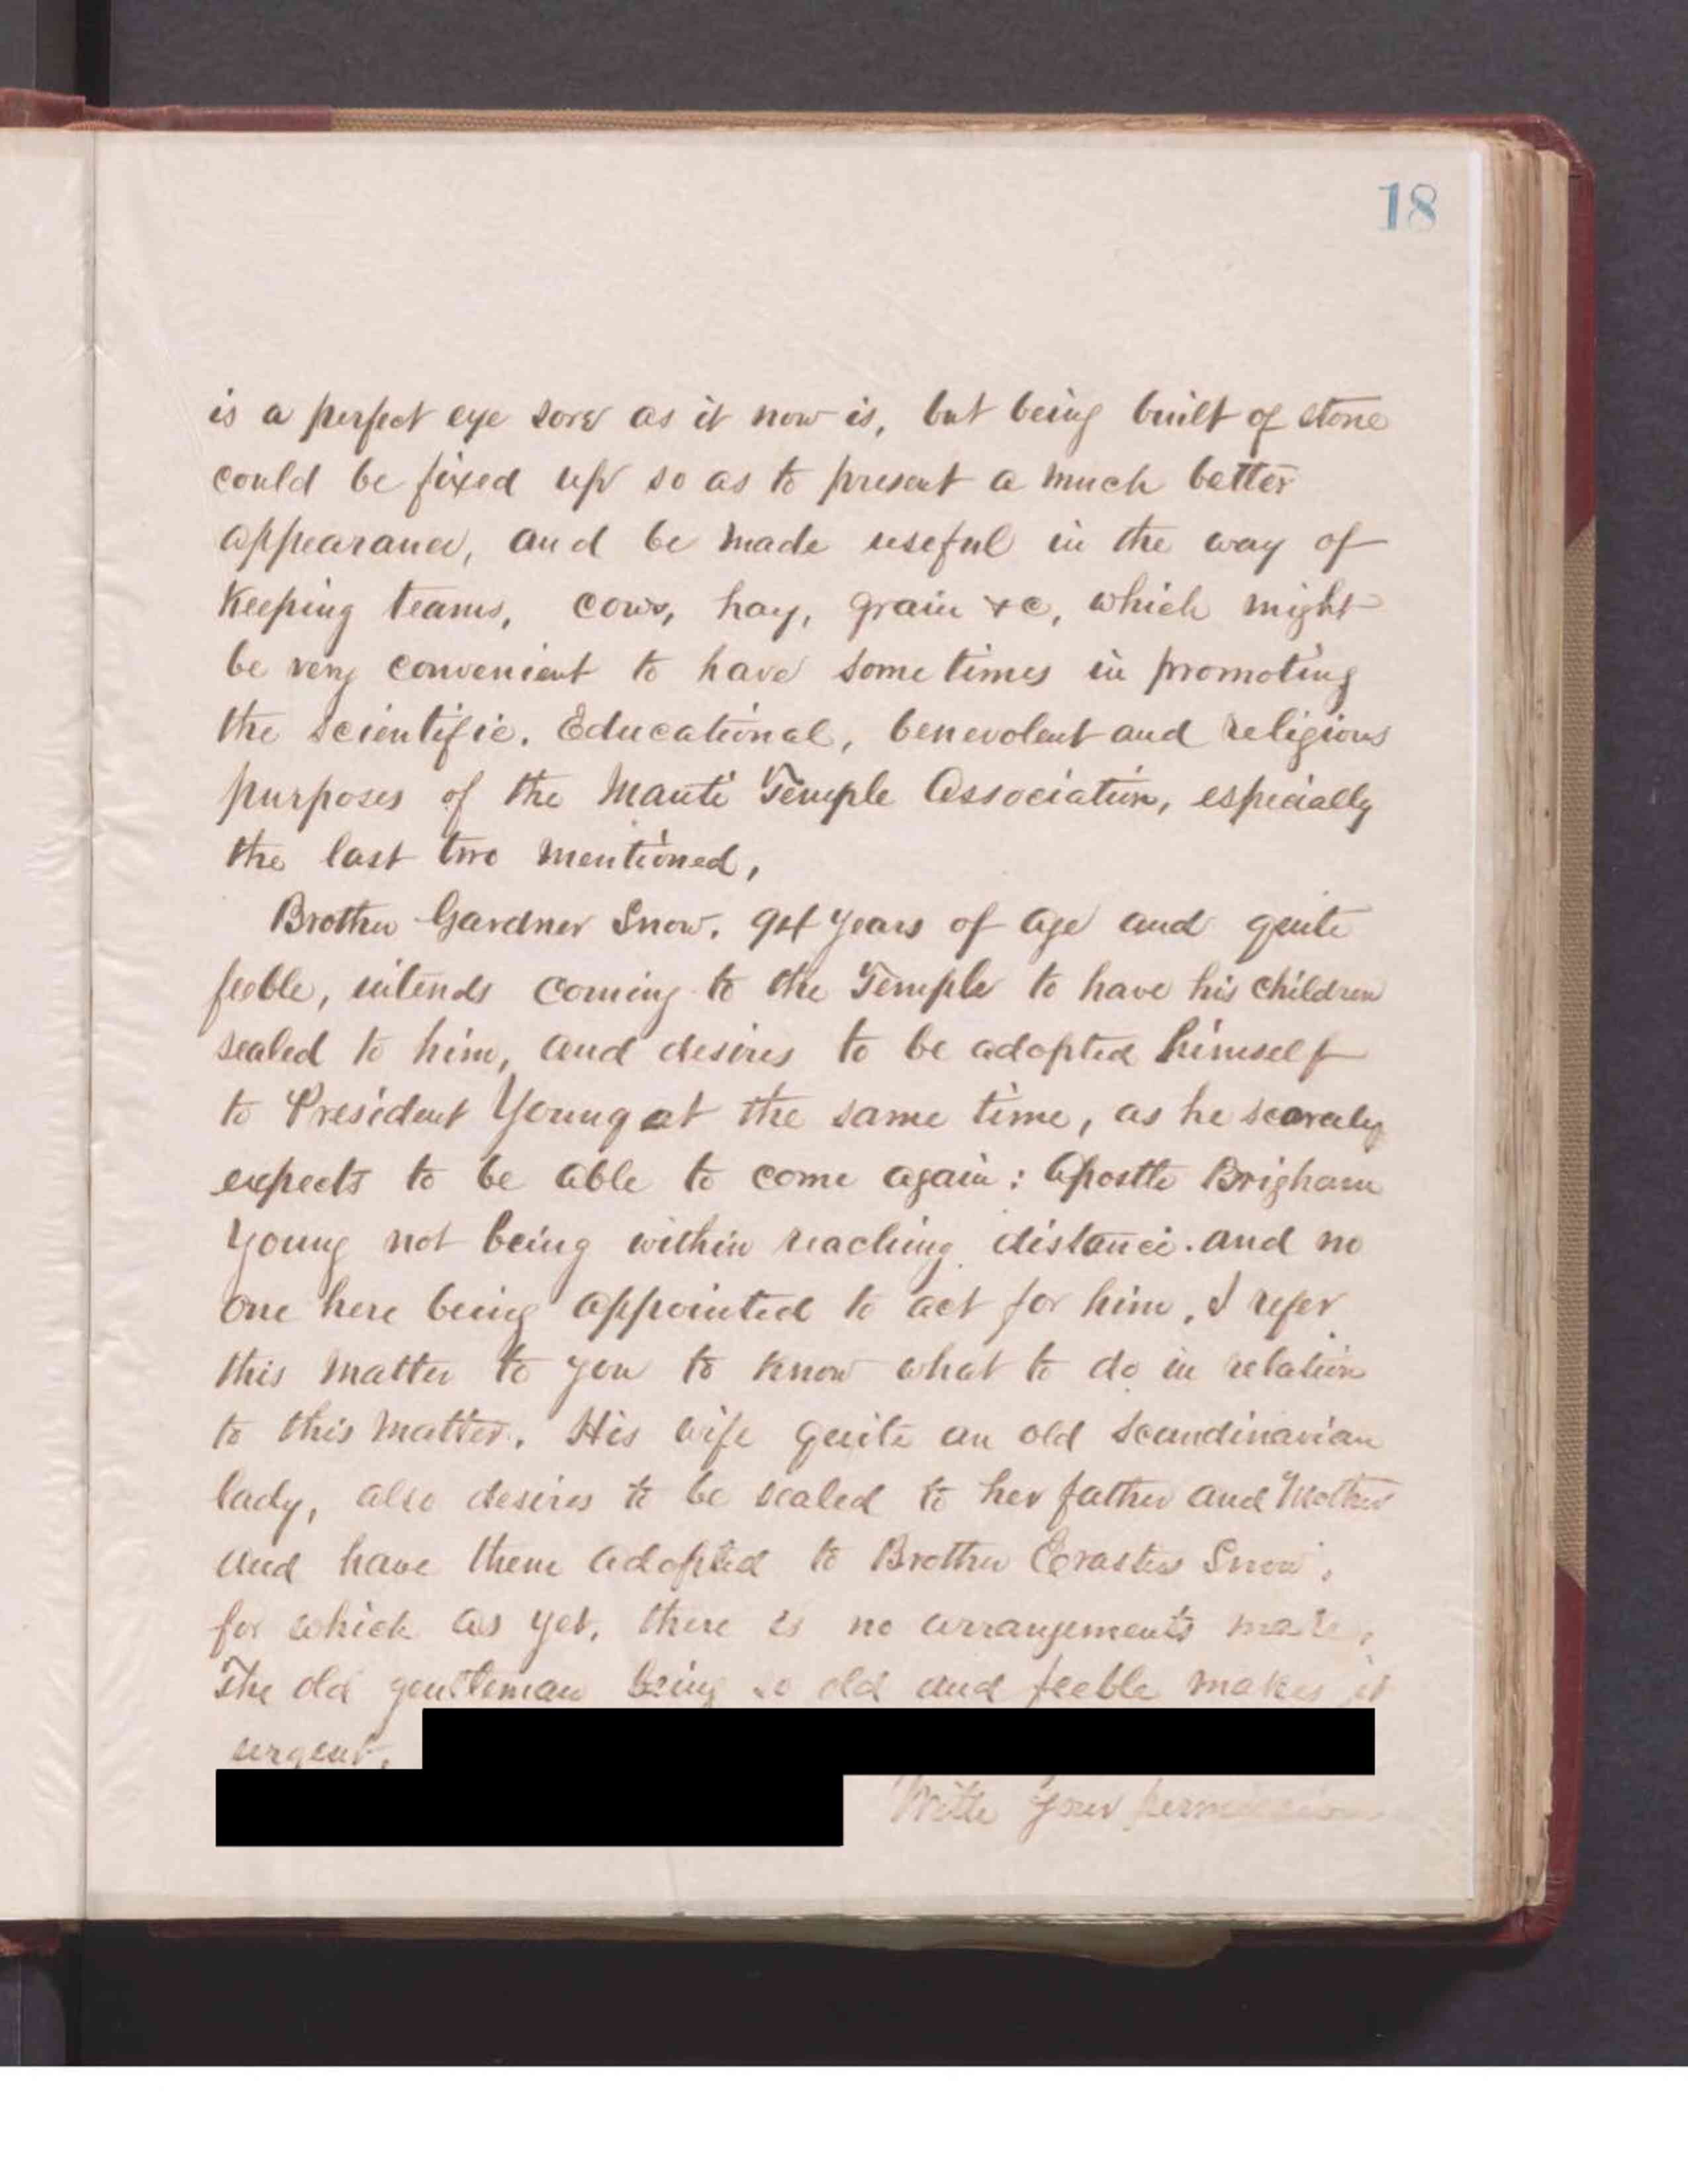 18
is a perfect eye sore as it now is, but being built of stone
could be fixed up so as to present a much better
appearance, and be made useful in the way of
Keeping teams, cows, hay, grain &c, which might
be very convenient to have some times in promoting
the scientific. Educational, benevolent and religious
purposes of the Manti Temple Association, especially
the last two mentioned,
Brother Gardner Snow. 94 years of age and quite
feeble, intends coming to the Temple to have his children
sealed to him, and desires to be adopted himself
to President Young at the same time, as he scarcely
expects to be able to come again: Apostle Brigham
Young not being within reaching distance. and no
one here being appointed to act for him, I refer
this matter to you to know what to do in relation
to this matter. His wife quite an old Scandinavian
lady, also desires to be sealed to her father and Mother
and have them adopted to Brother Erastus Snow,
for which as yet, there is no arrangements made,
The old gentleman being so old and feeble makes it
urgent.
With your permission